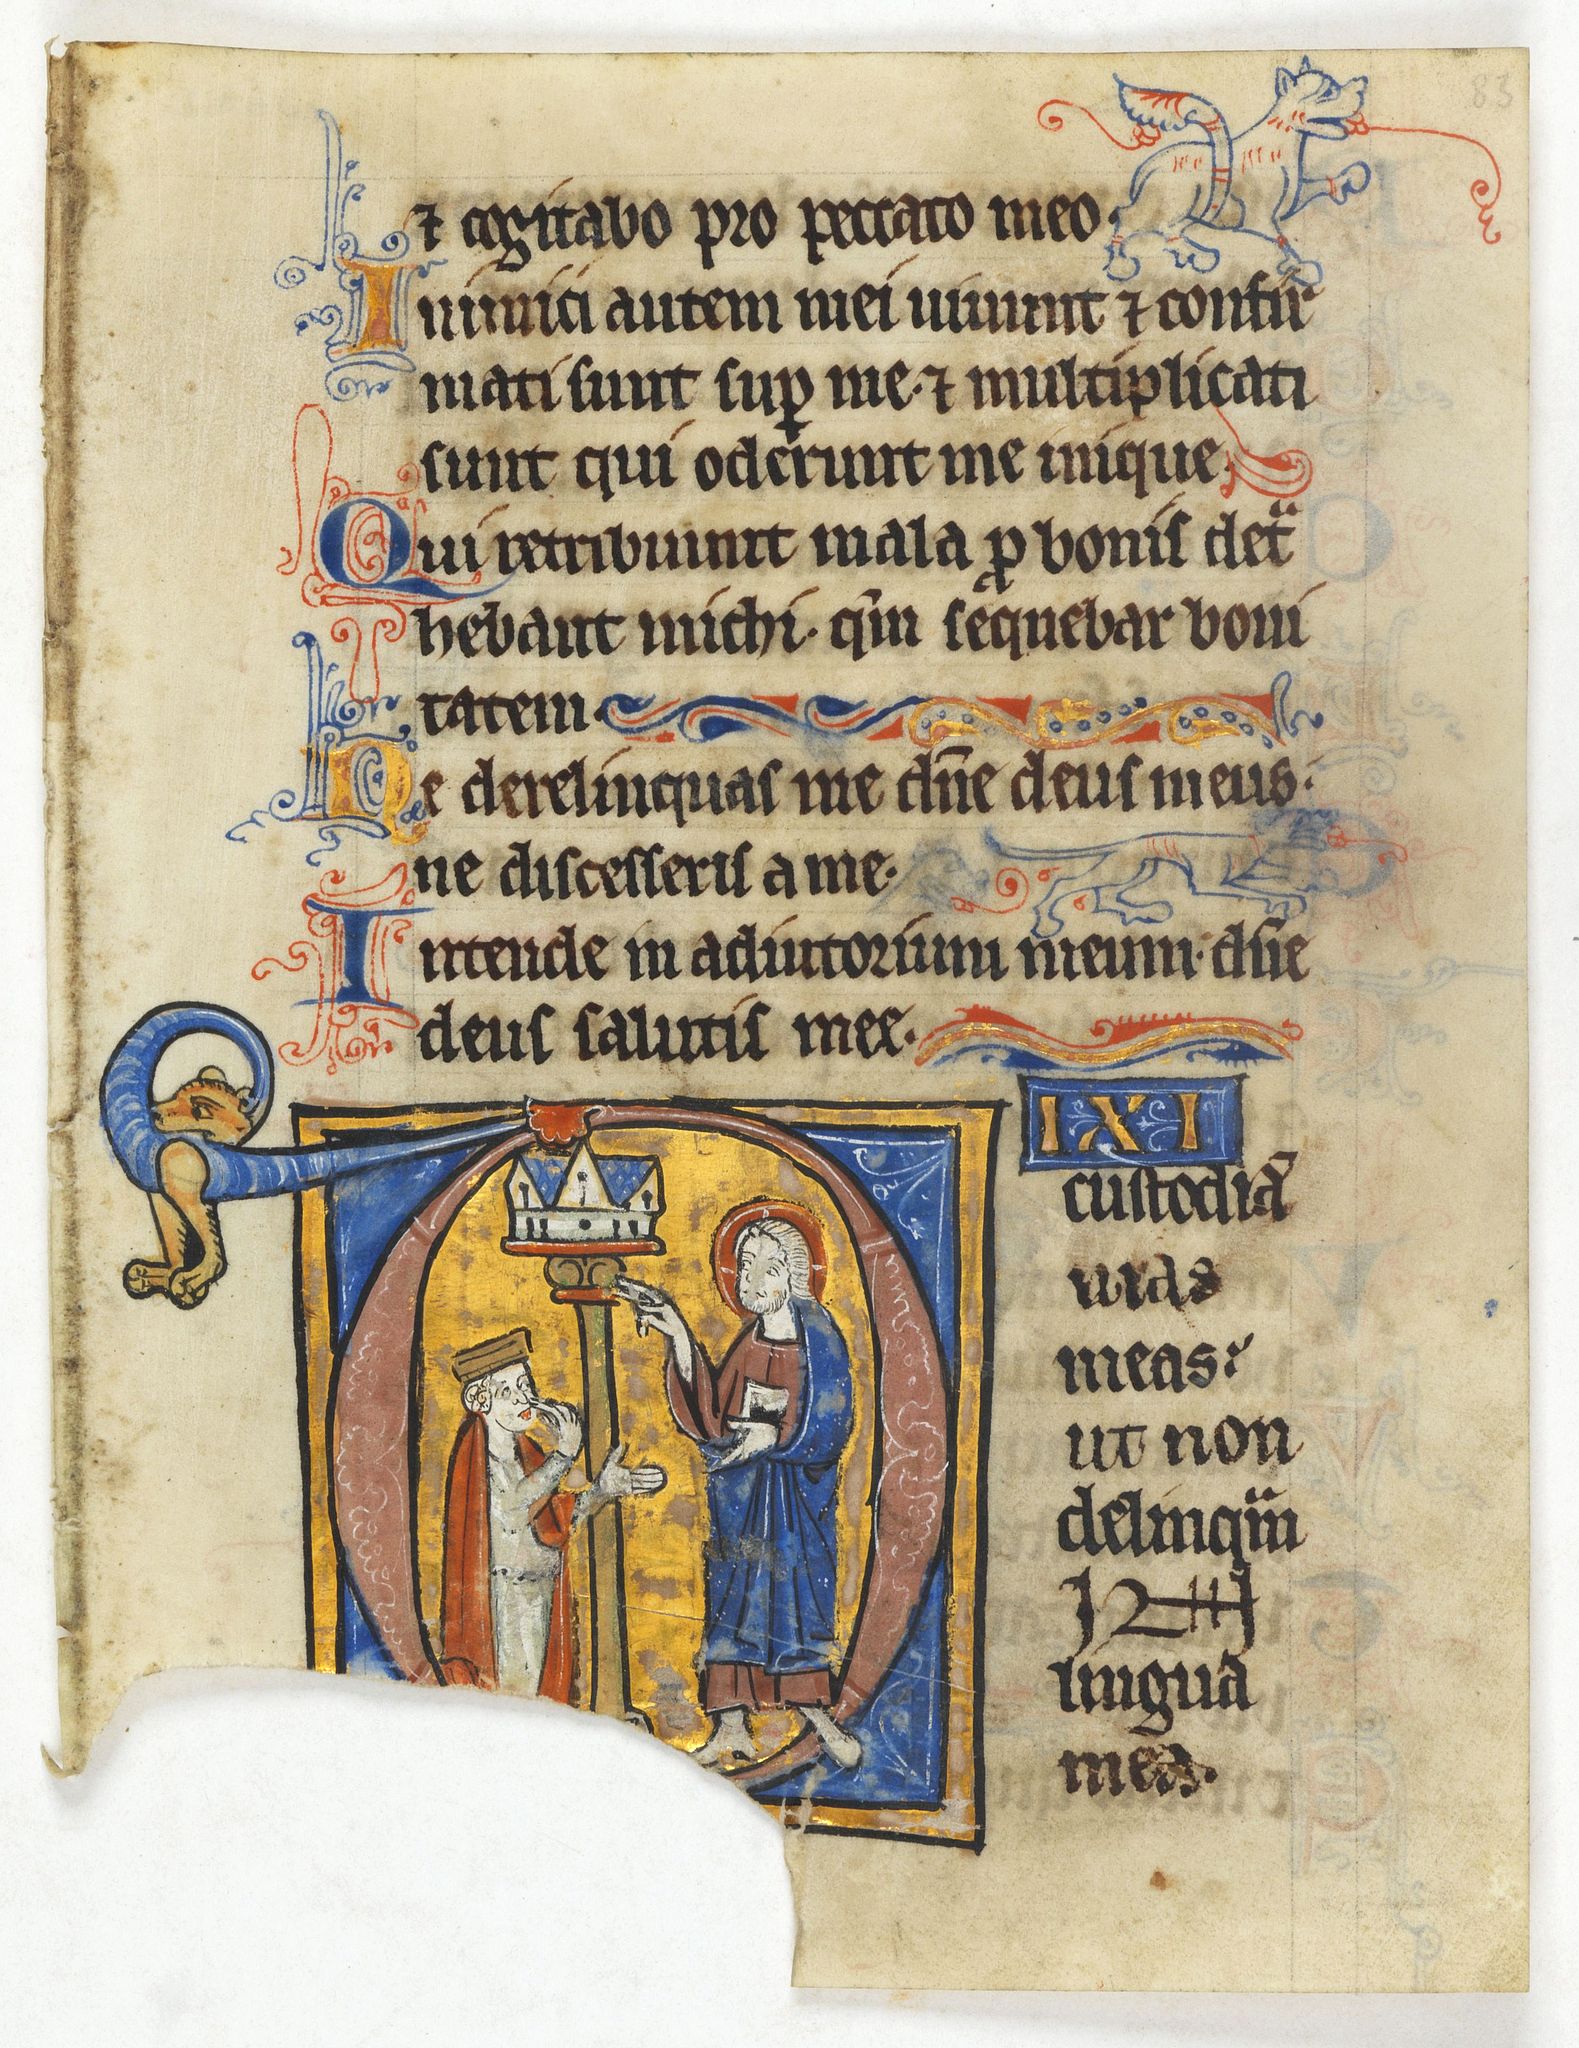 83
⁊ cogitabo pro peccato meo.
Inimici autem mei uiuunt ⁊ confir
mati sunt suꝑ me. ⁊ multiplicati
sunt qui oderunt me inique.
Qui retribuunt mala ꝓ bonis det̾
hebant michi. qm̄ seq̄uebar boni
tatem.
Ne derelinquas me dn̄e deus meus.
ne discesseris a me.
Intende in adiutorium meum. dn̄e
deus salutis mee.
DIXI
custodiā
uias
meas:
ut non
delinquā
in
linguā
mea.